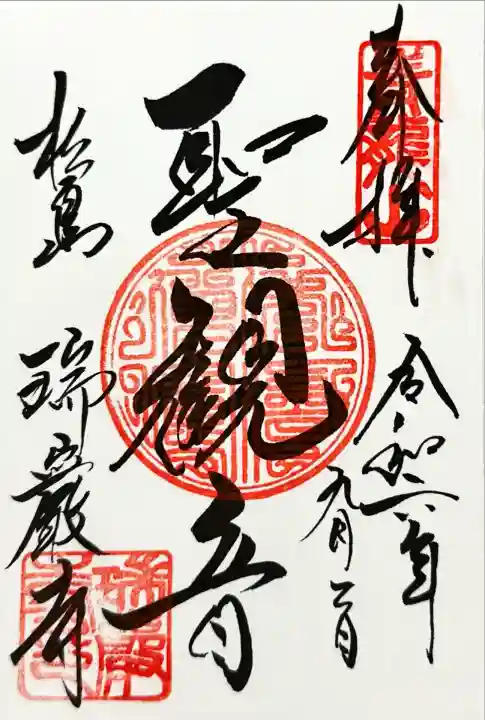 奉拝
令和六年
九月一日
聖観音
松島
瑞巌寺